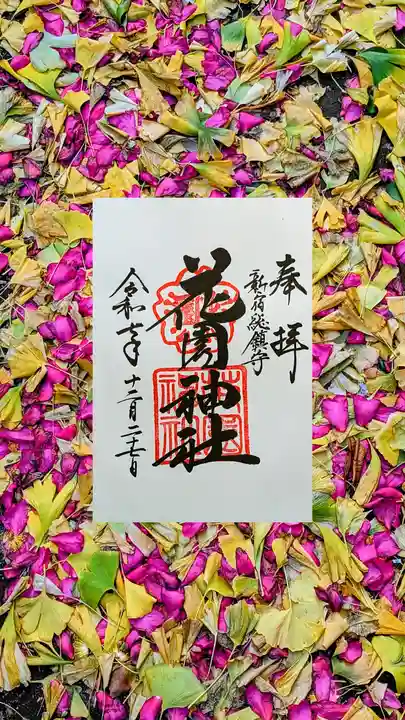 奉拝
新宿総鎮守
花園神社
令和七年 十二月二十七日